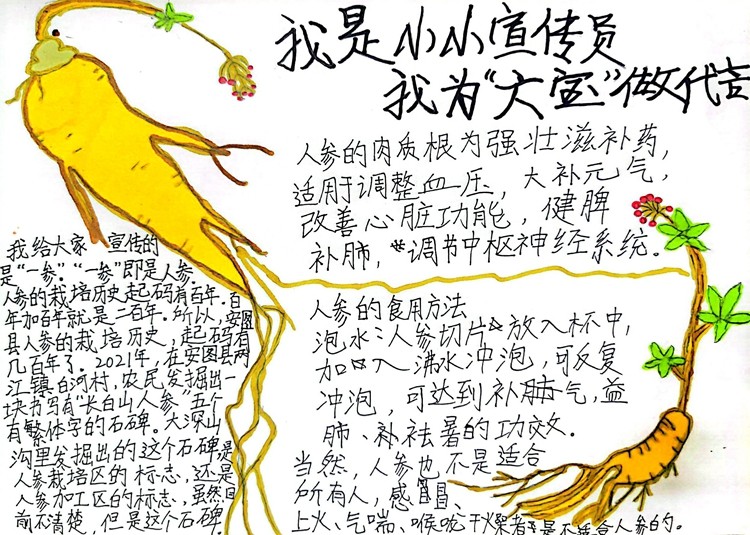 我是小小宣传员
我为“大宝”做代言
人参的肉质根为强壮滋补药，
适用于调整血压，大补元气，
改善心脏功能，健脾
补肺，调节中枢神经系统。
我给大家宣传的
是“一参”。“一参”即是人参。
人参的栽培历史起码有百年。百
年加百年就是二百年。所以，安图
县人参的栽培历史，起码有
几百年了。2021年，在安图县两
江镇白河村，农民发掘出一
块书写有“长白山人参”五个
有繁体字的石碑。大深山
沟里发掘出的这个石碑是
人参栽培区的标志，还是
人参加工区的标志，虽然目
前不清楚，但是这个石碑
人参的食用方法
泡水：人参切片放入杯中，
加入沸水冲泡，可反复
冲泡，可达到补肺气，益
肺、补祛暑的功效．
当然，人参也不是适合
所有人，感冒、
上火、气喘、喉咙干燥者是不适合人参的。